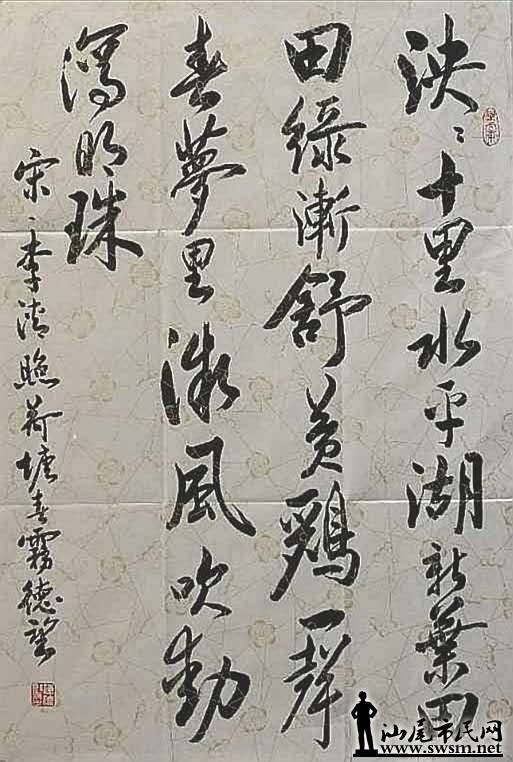 泱〻十里水平湖新葉田
田綠漸舒黄鷄一聲
春夢里微風吹動
瀉明珠
宋、李清照荷塘春霧德望
汕尾市民网
www.swsm.net